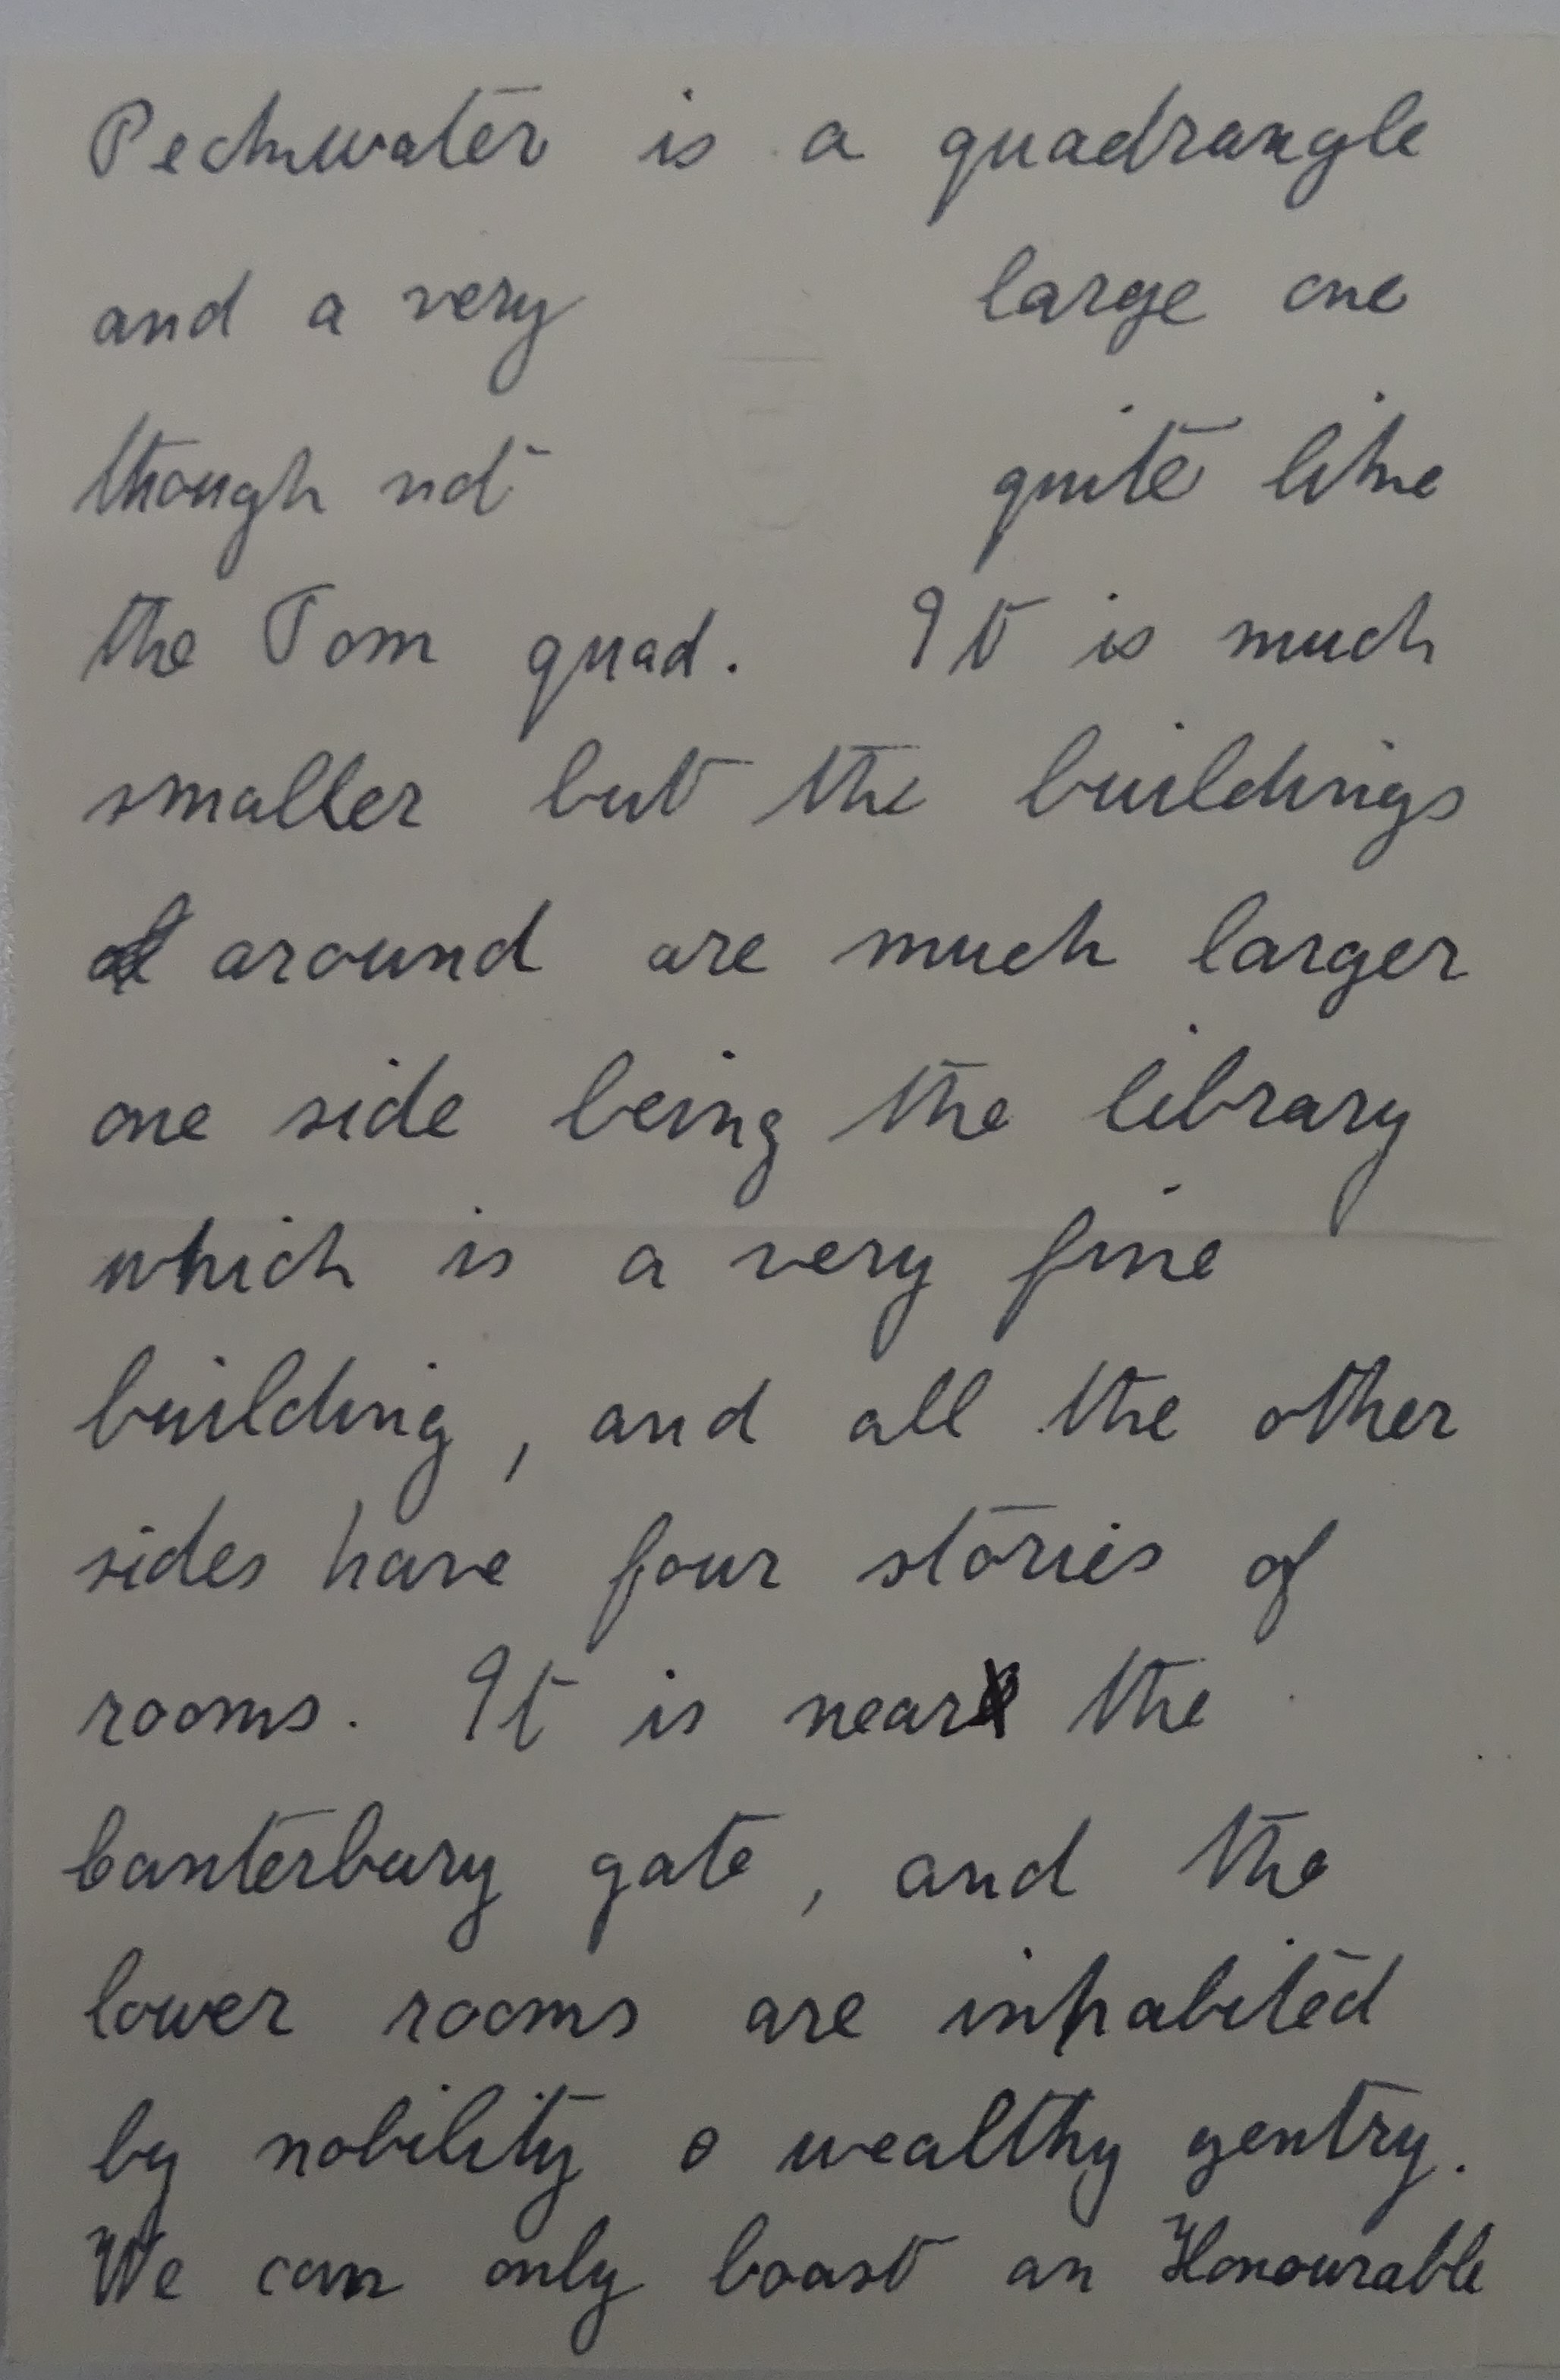 Peckwater is a quadrangle
and a very large one
though not quite like
the Tom quad. It is much
smaller but the buildings
around are much larger
one side being the library
which is a very fine
building, and all the other
sides have four stories of
rooms. It is near the
Canterbury gate, and the
lower rooms are inhabited
by nobility o wealthy gentry.
We can only boast an Honourable